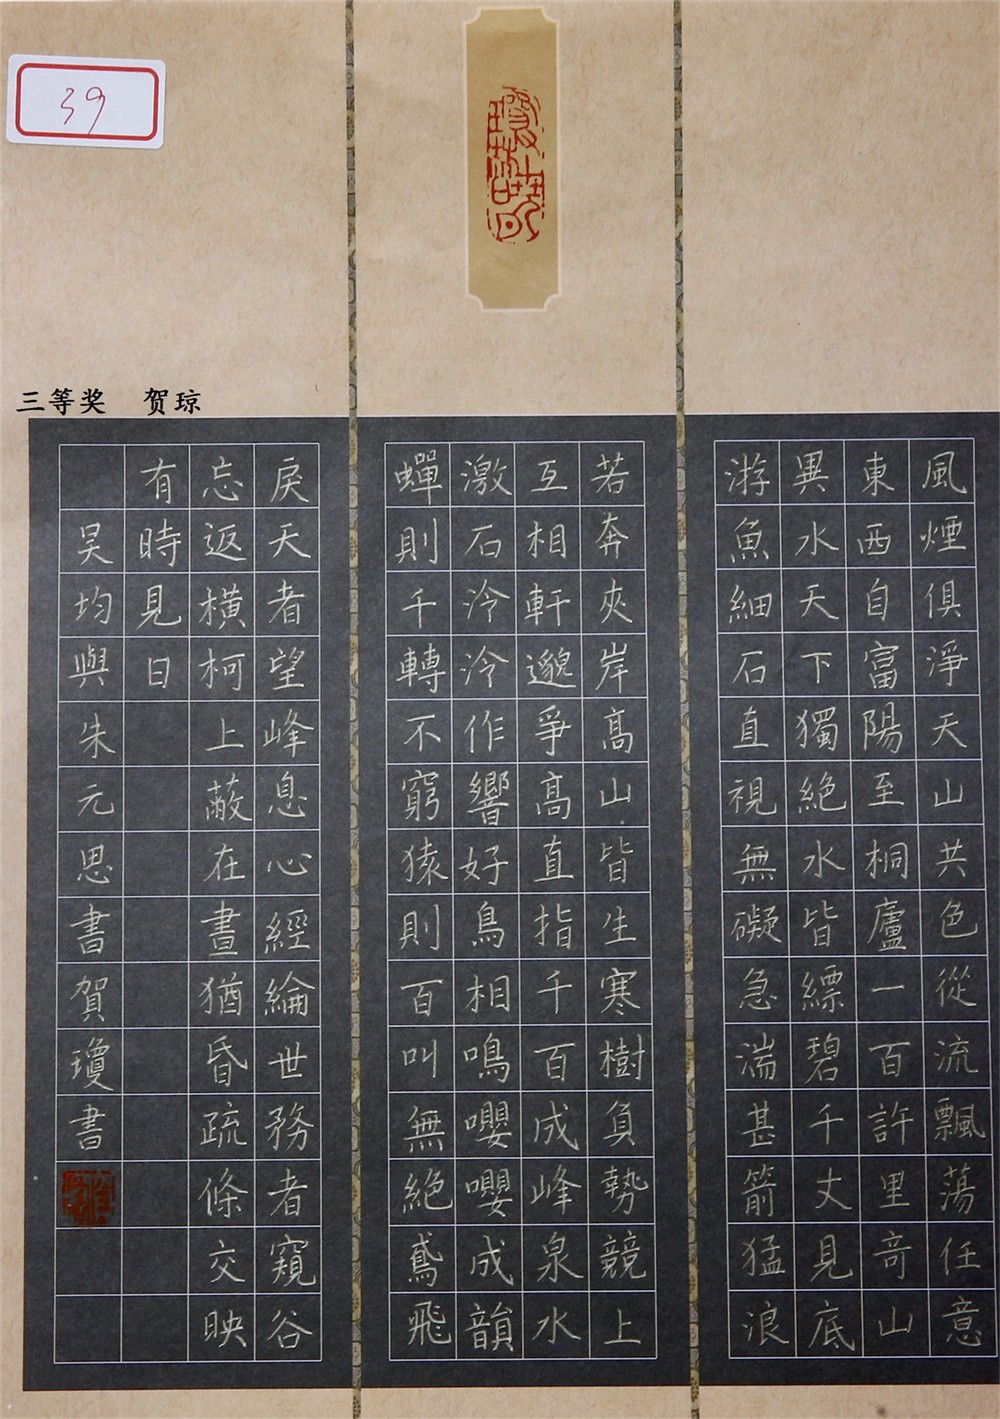 39
三等奖 贺琼
風煙俱淨天山共色從流飄蕩任意
東西自富陽至桐廬一百許里奇山
異水天下獨絶水皆縹碧千丈見底
游魚細石直視無礙急湍甚箭猛浪
若奔夾岸高山皆生寒樹負勢競上
互相軒邈爭高直指千百成峰泉水
激石泠泠作響好鳥相鳴嚶嚶成韻
蟬則千轉不窮猿則百叫無絶鳶飛
戾天者望峰息心經綸世務者窺谷
忘返橫柯上蔽在晝猶昏疏條交映
有時見日
吴均與朱元思書賀瓊書